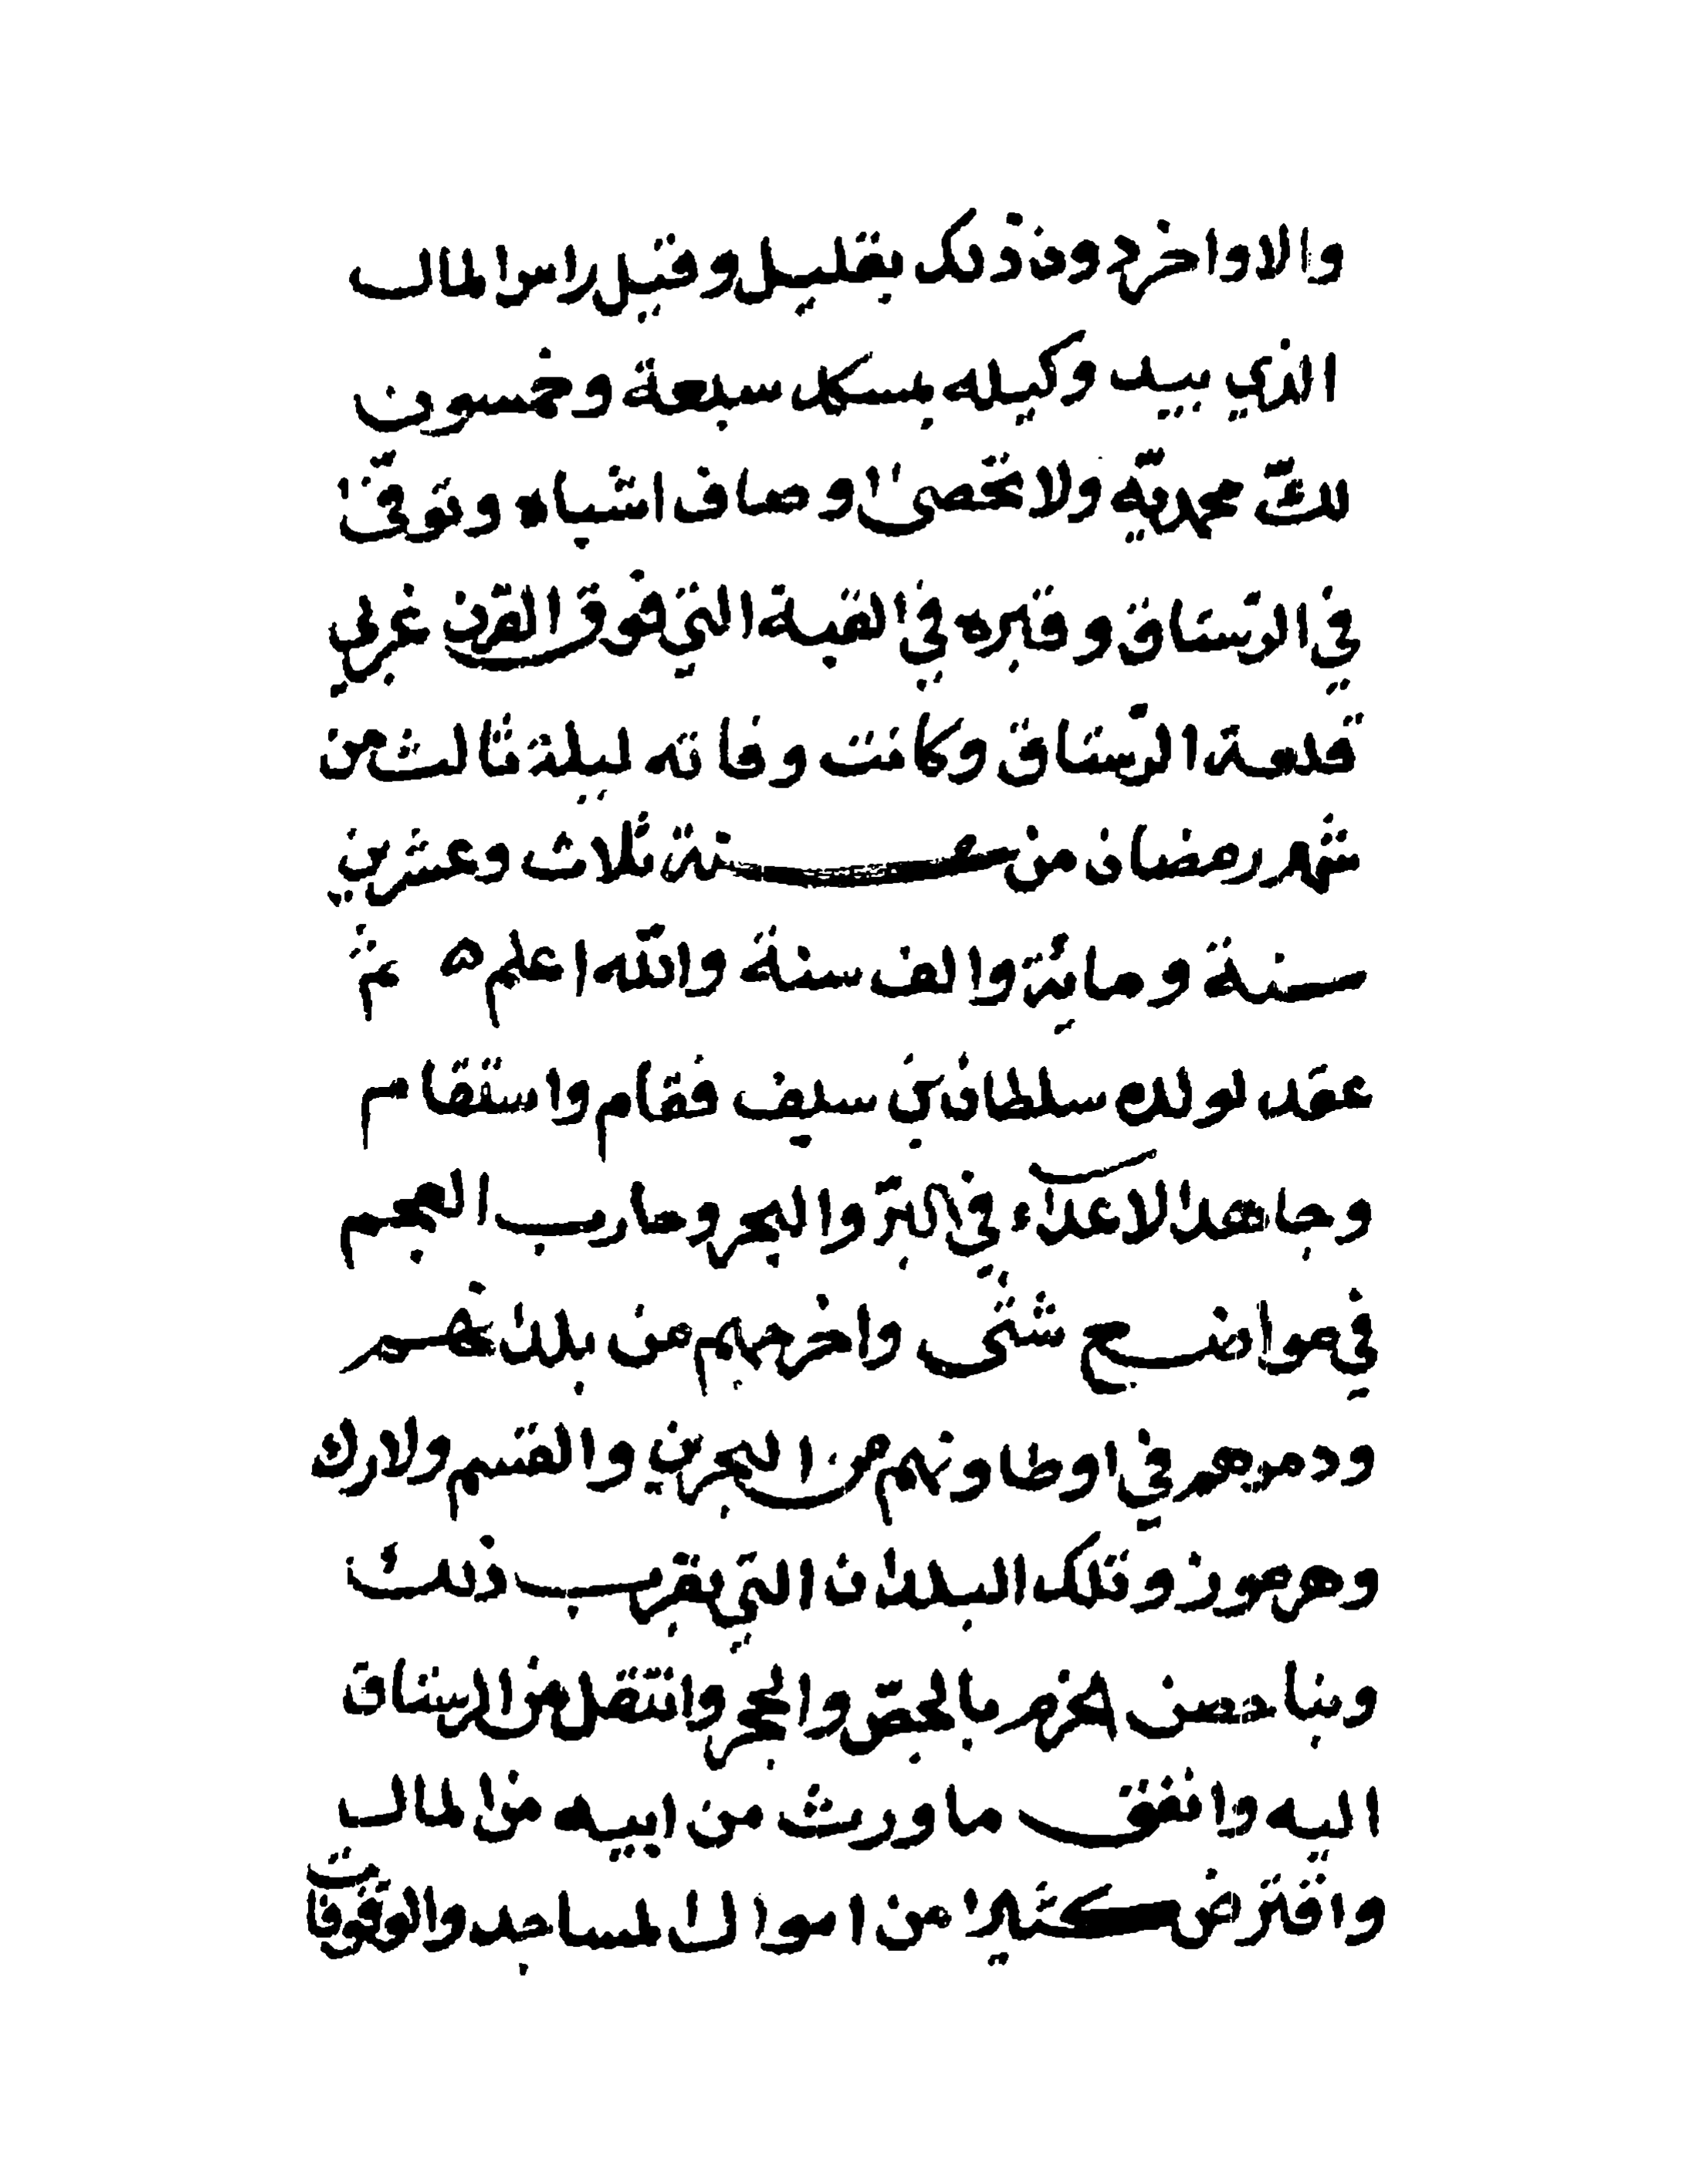 والاواخر دون ذلك بقليل وقيل راس المال
الذي بيد وكيله بمسكد سبعة وخمسون
لكّ محمديّة ولا تحصىٰ اوصاف اشياه وتوفّىٰ
في الرّستاق وقبره في القبة التي فوق القرن غربي
قلعة الرّستاق وكانت وفاته ليلة ثالث من
شهر رمضان من سنة ثلاث وعشرين
سنة ومائة والف سنة واللّه اعلم ٥ ثمّ
عقد لولده سلطان بن سيف فقام واستقام
وجاهد الاعدآء في البرّ والبحر وحارب العجم
في مواضع شتّى واخرجهم من بلدانهم
ودمرهم في اوطاونهم من البحرين والقسم ولارك
وهرموز وتلك البلدان التي بقرب ذلك
وبنا حصن الحزم بالجصّ والحجر وانتقل من الرستاق
اليه وانفق ما ورث من ابيه من المال
واقترض كثيرا من اموال المساجد والوقوفات